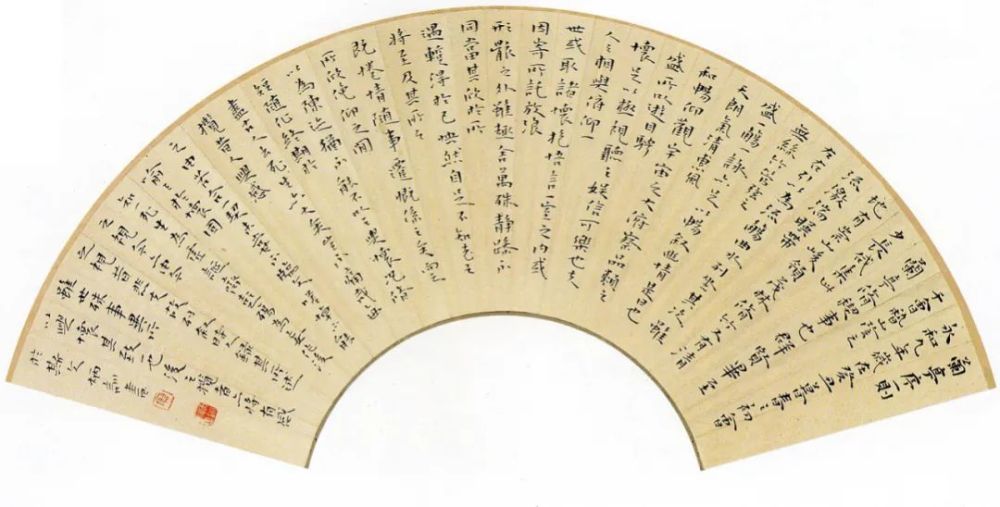 蘭亭序則
永和九年歲在癸丑暮春之初會
于會稽山陰之
蘭亭脩禊事也群賢畢至
少長咸集此
地有崇山峻領茂林脩竹又有清
流激湍暎帶
左右引以為流觴曲水列坐其次雖
無絲竹管弦之
盛一觴一詠亦足以暢敘幽情是日也
天朗氣清惠風
和暢仰觀宇宙之大俯察品類之
盛所以遊目騁
懷足以極視聽之娛信可樂也夫
人之相與俯仰一
世或取諸懷抱悟言一室之內或
因寄所託放浪
形骸之外雖趣舍萬殊靜躁不
同當其欣於所
遇蹔得於己怏然自足不知老之
將至及其所之
既惓情隨事遷慨係之矣向之
所欣俛仰之閒
以為陳迹猶不能不以之興懷況脩
短隨化終期於
盡古人云死生亦大矣豈不痛哉每
攬昔人興感
之由若合一契未嘗不臨文嗟悼不能
喻之於懷固
知一死生為虛誕齊彭殤為妄作後
之視今亦今
之視昔悲夫故列敘時人錄其所述
雖世殊事異所
以興懷其致一也後之攬者亦將有感
於斯文